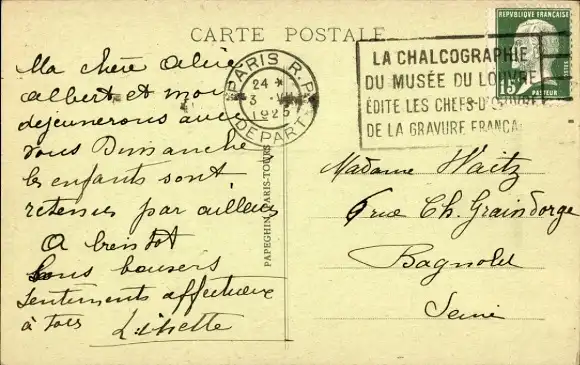 CARTE POSTALE
Ma chère Alice
Albert et moi
déjeunerons avec
vous Dimanche
les enfants sont
retenus par ailleurs
A bientôt
bons baisers
sentiments affectueux
à tous Linette
PARIS R.P.
24
3 VII
1925
DEPART
LA CHALCOGRAPHIE
DU MUSÉE DU LOUVRE
ÉDITE LES CHEFS-D'ŒUVRE
DE LA GRAVURE FRANÇA
REPUBLIQUE FRANÇAISE
POSTES
15
PASTEUR
PAPEGHIN PARIS-TOURS
Madame Waitz
6 rue Ch. Graindorge
Bagnolet
Seine